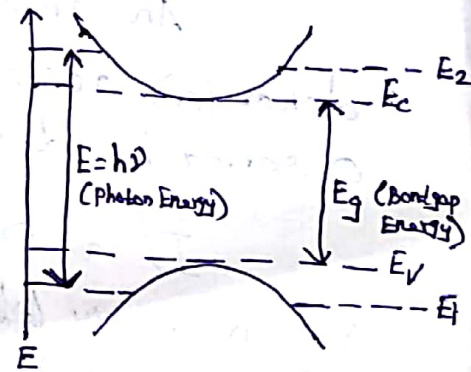 E2
Ec
E=hν
(Photon Energy)
Eg (Bandgap
Energy)
Ev
E1
E